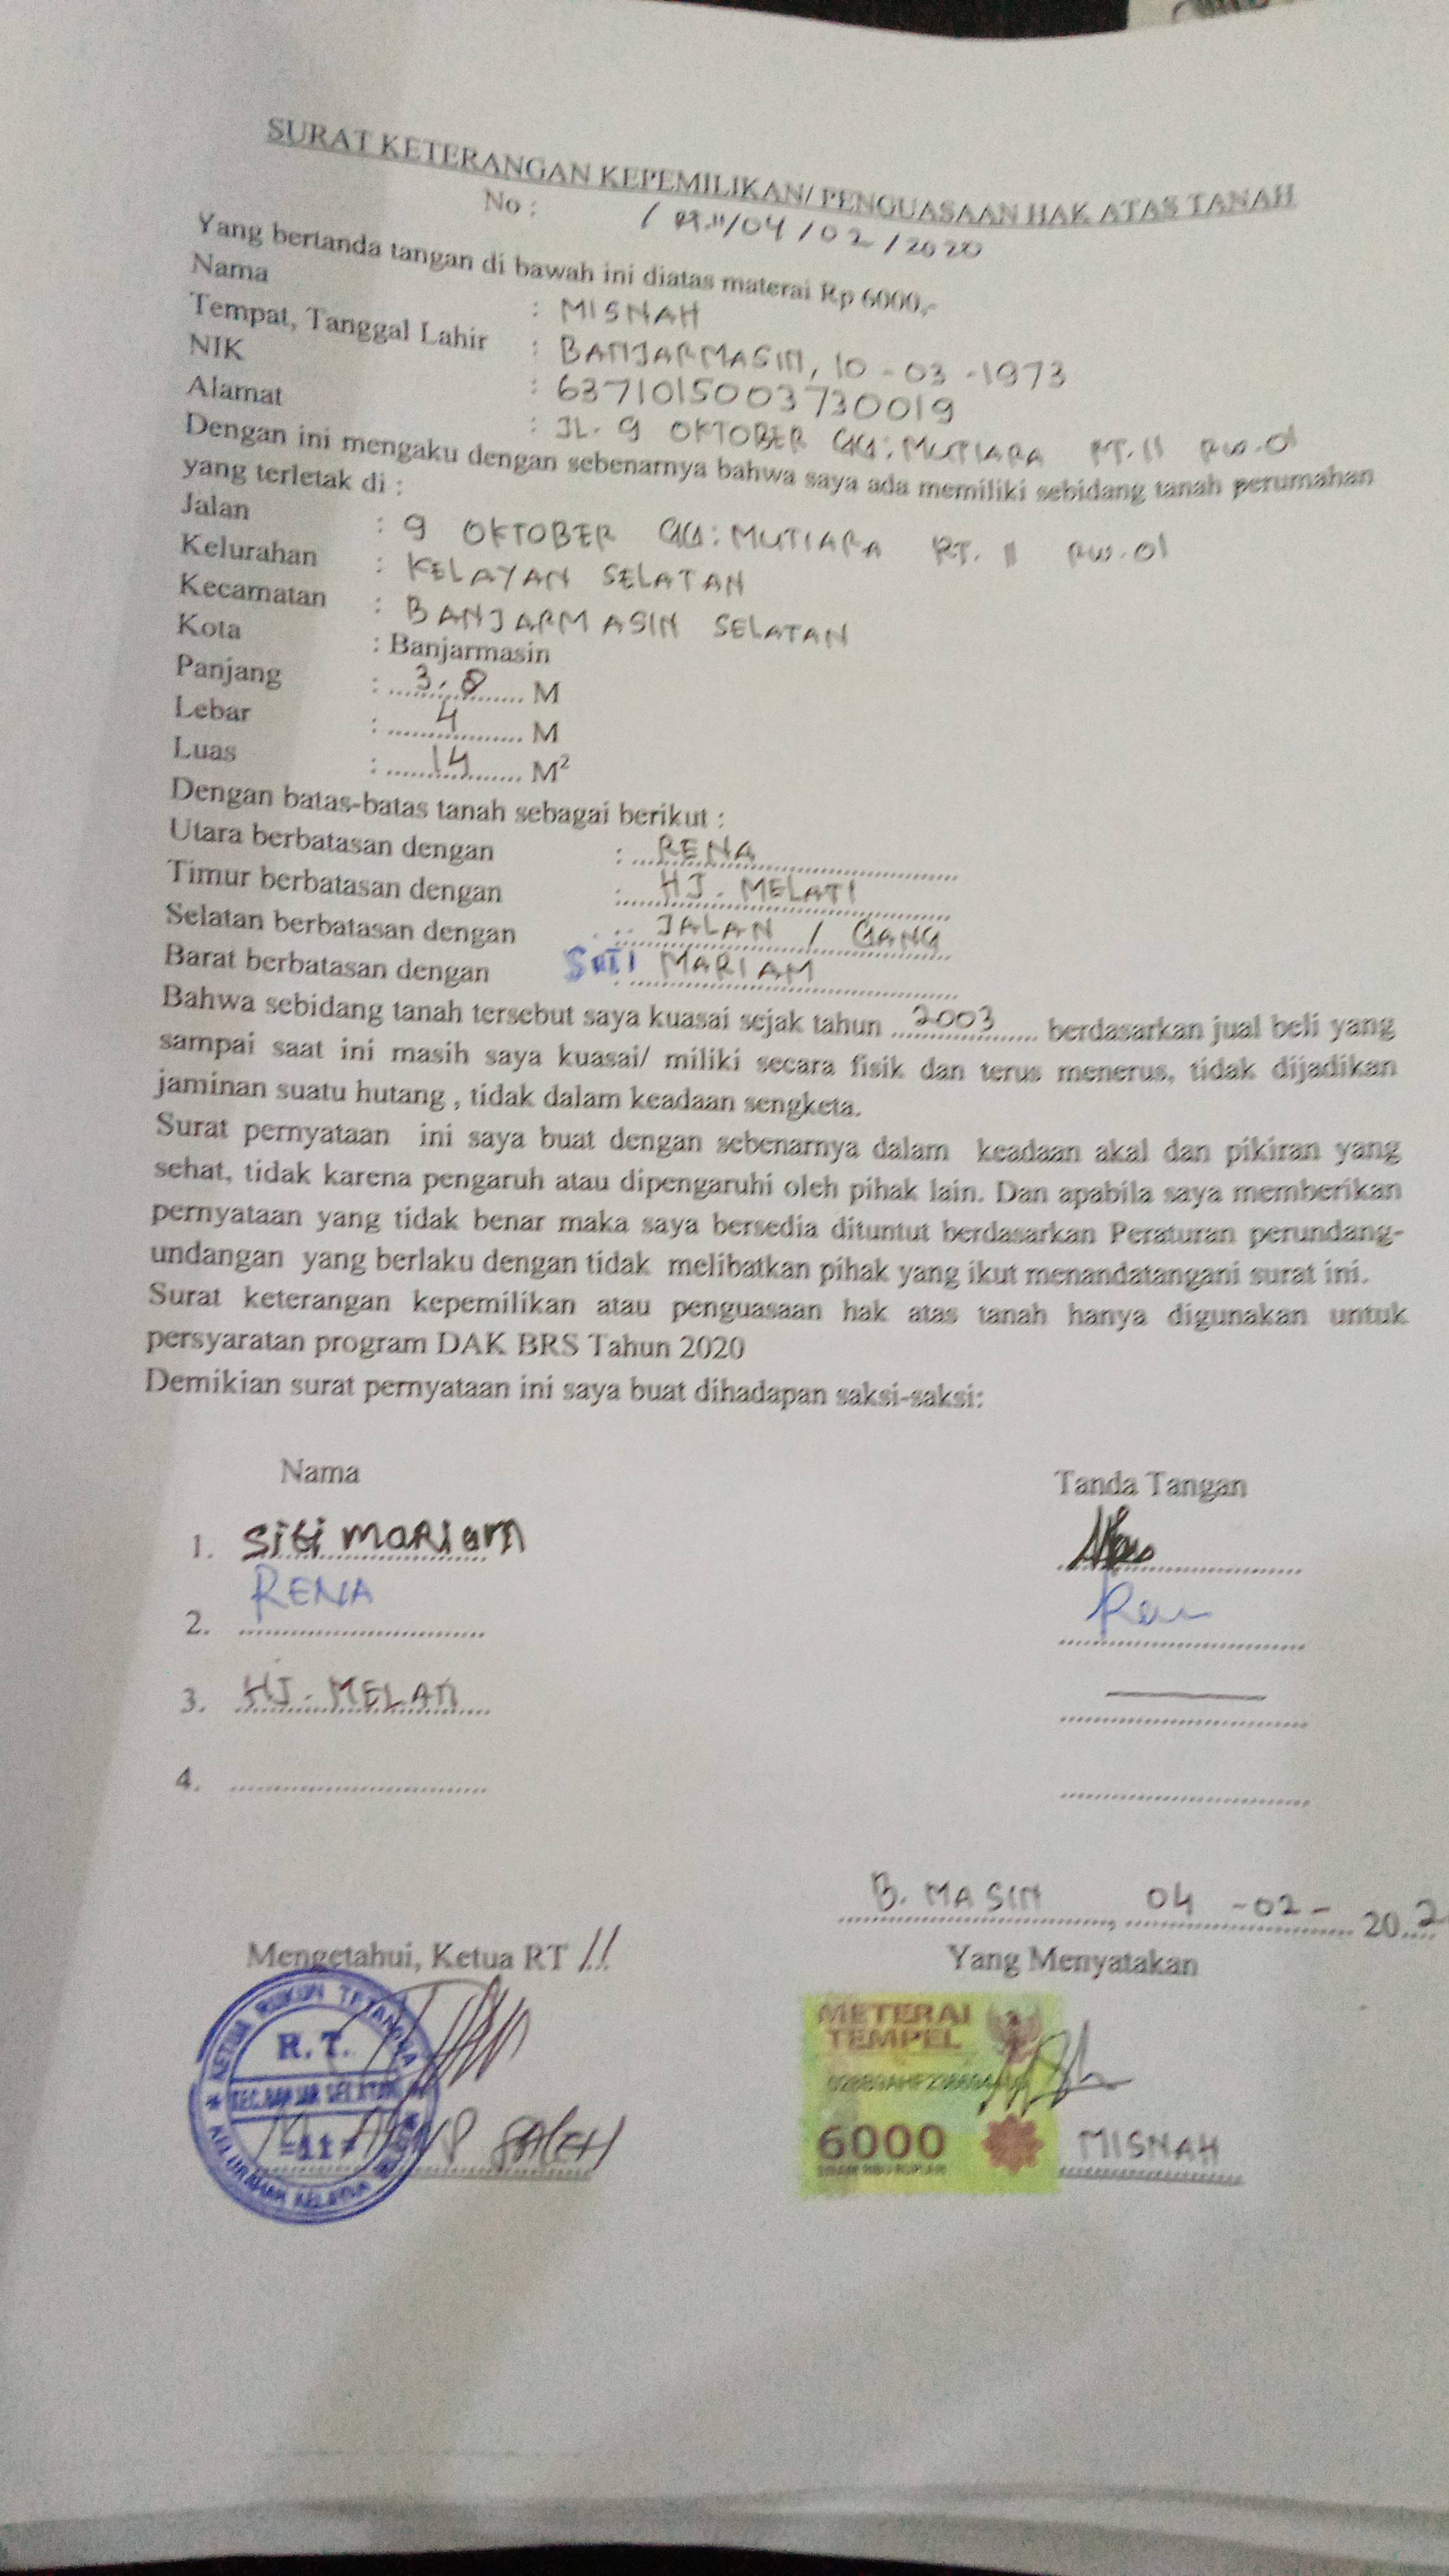 SURAT KETERANGAN KEPEMILIKAN/ PENGUASAAN HAK ATAS TANAH
No : / RT.11/04/02/2020
Yang bertanda tangan di bawah ini diatas materai Rp 6000,-
Nama : MISNAH
Tempat, Tanggal Lahir : BANJARMASIN, 10-03-1973
NIK : 6371015003730019
Alamat : JL. 9 OKTOBER GG: MUTIARA RT. 11 RW. 01
Dengan ini mengaku dengan sebenarnya bahwa saya ada memiliki sebidang tanah perumahan
yang terletak di :
Jalan : 9 OKTOBER GG: MUTIARA RT. 11 RW. 01
Kelurahan : KELAYAN SELATAN
Kecamatan : BANJARMASIN SELATAN
Kota : Banjarmasin
Panjang : 3,8 M
Lebar : 4 M
Luas : 14 M²
Dengan batas-batas tanah sebagai berikut :
Utara berbatasan dengan : RENA
Timur berbatasan dengan : HJ. MELATI
Selatan berbatasan dengan : JALAN / GANG
Barat berbatasan dengan : SITI MARIAM
Bahwa sebidang tanah tersebut saya kuasai sejak tahun 2003 berdasarkan jual beli yang
sampai saat ini masih saya kuasai/ miliki secara fisik dan terus menerus, tidak dijadikan
jaminan suatu hutang , tidak dalam keadaan sengketa.
Surat pernyataan ini saya buat dengan sebenarnya dalam keadaan akal dan pikiran yang
sehat, tidak karena pengaruh atau dipengaruhi oleh pihak lain. Dan apabila saya memberikan
pernyataan yang tidak benar maka saya bersedia dituntut berdasarkan Peraturan perundang-
undangan yang berlaku dengan tidak melibatkan pihak yang ikut menandatangani surat ini.
Surat keterangan kepemilikan atau penguasaan hak atas tanah hanya digunakan untuk
persyaratan program DAK BRS Tahun 2020
Demikian surat pernyataan ini saya buat dihadapan saksi-saksi:
Nama Tanda Tangan
1. Siti MARIAM
2. RENA
3. HJ. MELATI
4.
B. MASIN, 04 -02- 202
Mengetahui, Ketua RT 11 Yang Menyatakan
KETUA RUKUN TETANGGA
R. T.
KEC. BANJAR SELATAN
=11=
KELURAHAN KELAYAN
SALEH
METERAI
TEMPEL
6000
ENAM RIBU RUPIAH
MISNAH